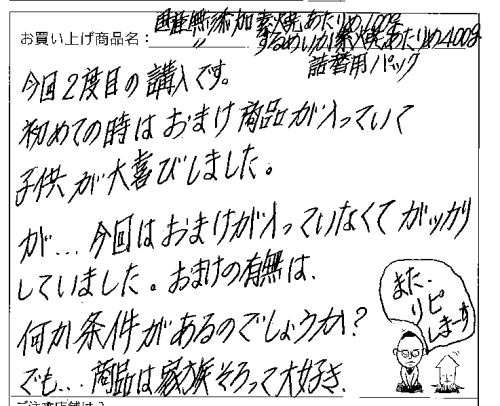 お買い上げ商品名: 国産無添加素焼あたりめ100g
〃 するめいか素焼あたりめ400g
詰替用パック
今回2度目の講入です。
初めての時はおまけ商品が入っていて
子供が大喜びしました。
が…今回はおまけが入っていなくてガッカリ
していました。おまけの有無は、
何か条件があるのでしょうか?
でも…商品は家族そろって大好き。
また、
リピ
しまーす